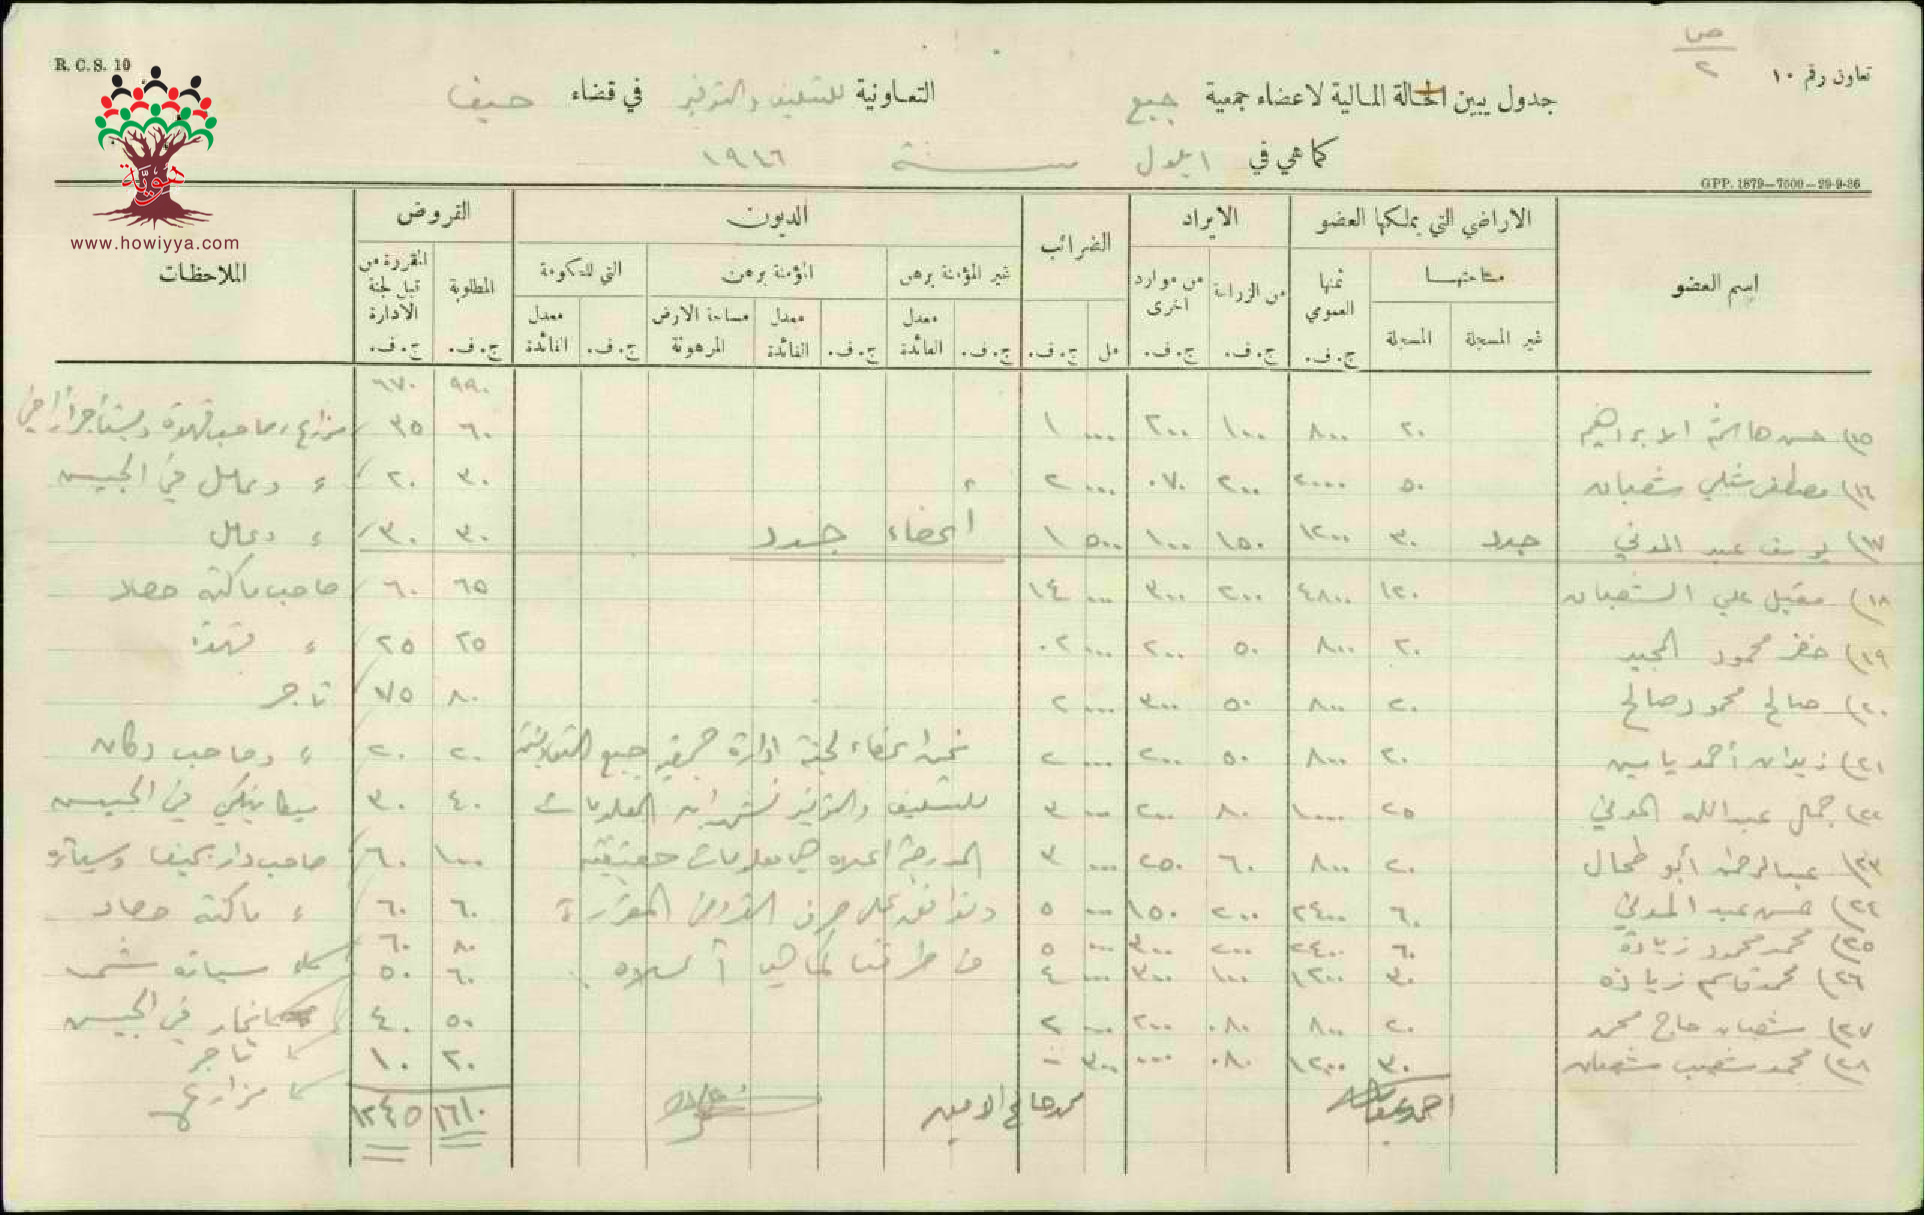 ص
٢
R. C. S. 10
تعاون رقم ١٠
جدول يبين الحالة المالية لاعضاء جمعية جبع التعاونية للتسليف والتوفير في قضاء حيفا
كما هي في ايلول سنة ١٩٤٦
GPP. 1879—7000—29-9-36
هوية
www.howiyya.com
اسم العضو الاراضي التي يملكها العضو الايراد الضرائب الديون القروض الملاحظات
مساحتها ثمنها العمومي من الزراعة من موارد اخرى غير المؤمنة برهن المؤمنة برهن التي للحكومة المطلوبة المقررة من قبل لجنة الادارة
غير المسجلة المسجلة ج.ف. ج.ف. ج.ف. مل ج.ف. ج.ف. معدل الفائدة ج.ف. معدل الفائدة مساحة الارض المرهونة ج.ف. معدل الفائدة ج.ف. ج.ف.
٩٩٠ ٦٧٠
١٥) حسن هاشم الابراهيم ٢٠ ٨٠٠ ١٠٠ ٢٠٠ ... ١ ٦٠ ٣٥ مزارع وصاحب قهوة ويستأجر أراضي
١٦) مصطفى شلبي شعبان ٥٠ ٢٠٠٠ ٢٠٠ ٠٧٠ ... ٢ ٣٠ ٢٠ ء وعامل في الجيش
١٧) يوسف عبد الموني جدد ٣٠ ١٢٠٠ ١٥٠ ١٠٠ ٥٠٠ ١ أعضاء جدد ٣٠ ٣٠ ء وعامل
١٨) مقبل علي الشعبان ١٢٠ ٤٨٠٠ ٢٠٠ ٣٠٠ ... ١٤ ٦٥ ٦٠ صاحب ماكنة حصاد
١٩) خضر محمود المجيد ٢٠ ٨٠٠ ٥٠ ٢٠٠ ... ٠٢ ٢٥ ٢٥ ء قهوة
٢٠) صالح محمود صالح ٢٠ ٨٠٠ ٥٠ ٣٠٠ ... ٢ ٨٠ ٧٥ تاجر
٢١) زيدان أحمد ياسين ٢٠ ٨٠٠ ٥٠ ٢٠٠ ... ٢ نحن اعضاء لجنة ادارة جمعية جبع التعاونية ٢٠ ٢٠ ء وصاحب دكان
٢٢) جمال عبدالله الموني ٢٥ ١٠٠٠ ٨٠ ٢٠٠ ... ٣ للتسليف والتوفير نشهد ان المعلومات ٤٠ ٣٠ ميكانيكي في الجيش
٢٣) عبدالرحمن أبو طحال ٢٠ ٨٠٠ ٦٠ ٢٥٠ ... ٣ المدرجة اعلاه هي معلومات حقيقية ١٠٠ ٦٠ صاحب دار بحيفا وسيارة
٢٤) حسن عبد الموني ٦٠ ٢٤٠٠ ٢٠٠ ١٥٠ ... ٥ ونوافق على صرف القروض المقررة ٦٠ ٦٠ ء ماكنة حصاد
٢٥) محمد محمود زيادة ٦٠ ٢٤٠٠ ٢٠٠ ٣٠٠ ... ٥ من طرفنا كما هي أعلاه . ٨٠ ٦٠
٢٦) محمد قاسم زياده ٣٠ ١٢٠٠ ١٠٠ ٣٠٠ ... ٤ ٦٠ ٥٠ سيارة شحن
٢٧) شعبان حاج محمد ٢٠ ٨٠٠ ٠٨٠ ٢٠٠ ... ٢ ٥٠ ٤٠ نجار في الجيش
٢٨) محمد شعيب شعبان ٣٠ ١٢٠٠ ٠٨٠ ... ٣٠٠ - ٢٠ ١٠ تاجر
مزارع
محمد صالح الامين ١٦١٠ ١٢٤٥